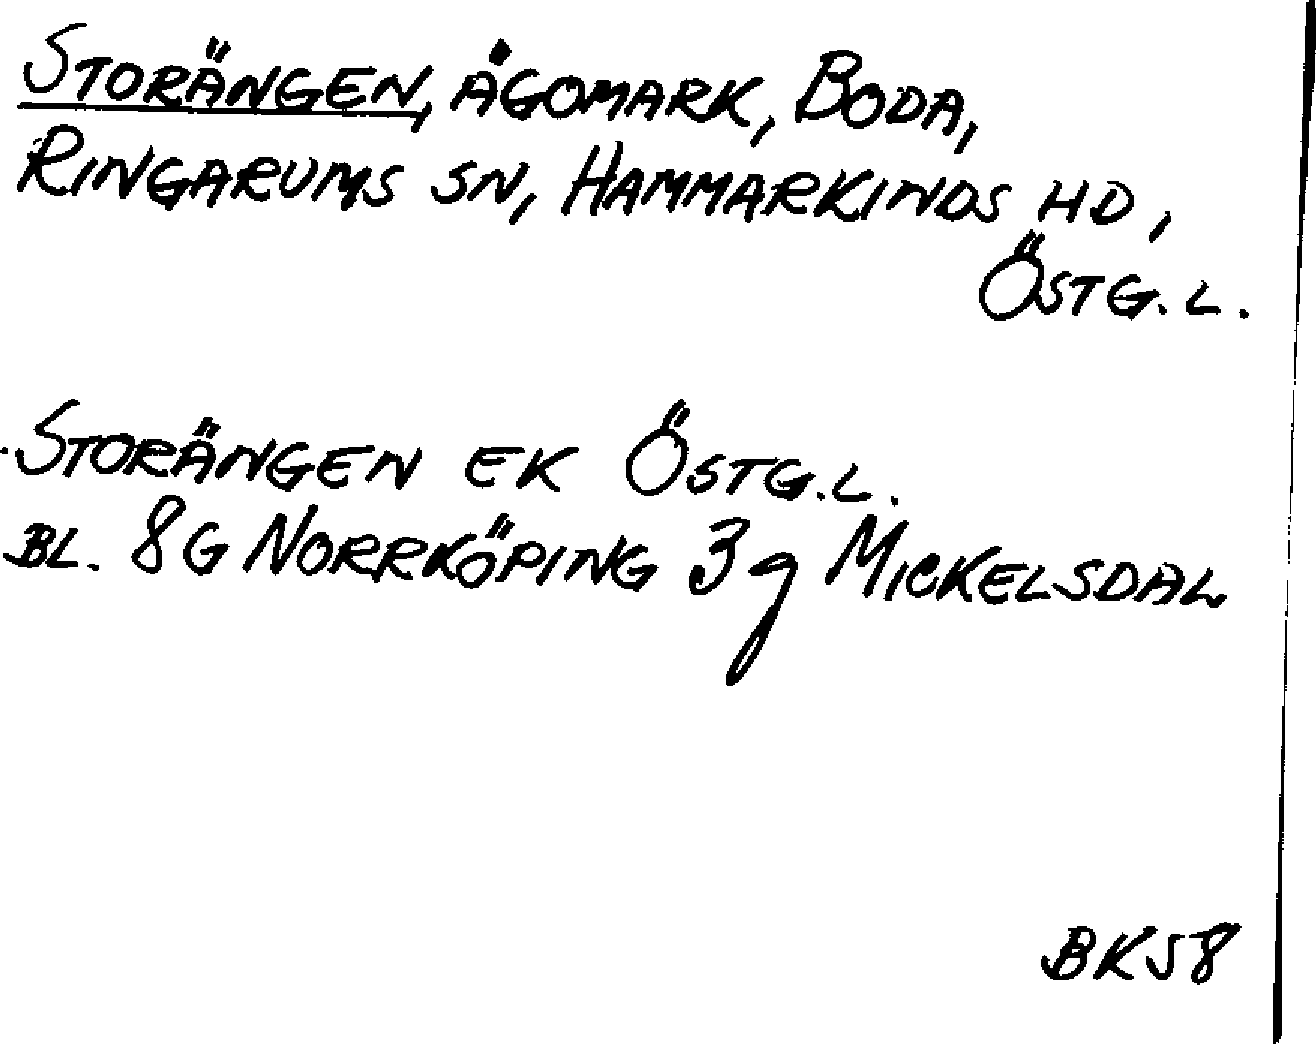 STORÄNGEN, ÄGOMARK, BODA,
RINGARUMS SN, HAMMARKINDS HD,
ÖSTG.L.
STORÄNGEN EK ÖSTG.L.
BL. 8G NORRKÖPING 3g MICKELSDAL
BK58